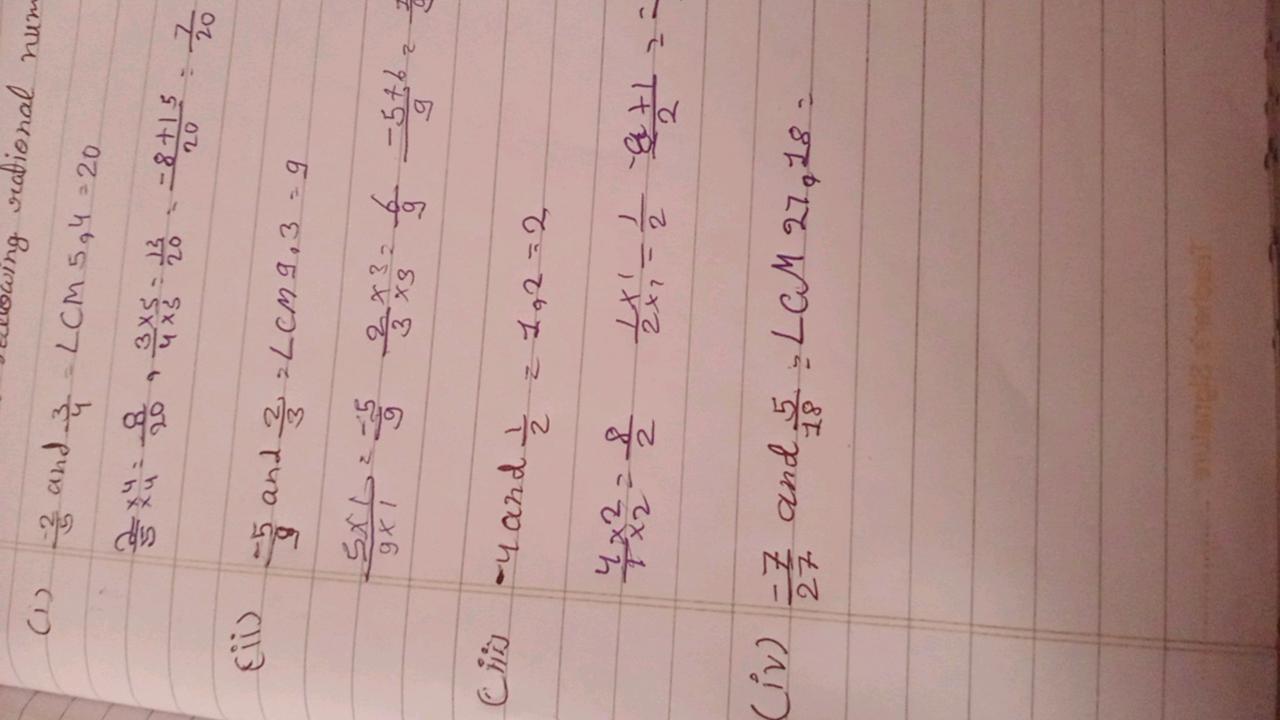 following rational num
(i) -2/5 and 3/4 = LCM 5,4 = 20
2/5 ×4/×4 = 8/20, 3×5/4×5 = 15/20 = -8+15/20 = 7/20
(ii) -5/9 and 2/3 = LCM 9,3 = 9
5×1/9×1 = -5/9 2×3/3×3 = 6/9 -5+6/9 =
(iii) -4 and 1/2 = 1,2 = 2
4×2/1×2 = 8/2 1×1/2×1 = 1/2 -8+1/2 = -
(iv) -7/27 and 5/18 = LCM 27,18 =